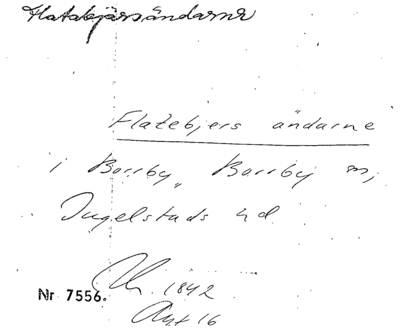 Flatebjärsändarne
Flatebjers ändarne
i Borrby, Borrby sn,
Ingelstads hd
Ch. 1842
Nr 7556.
Akt 16